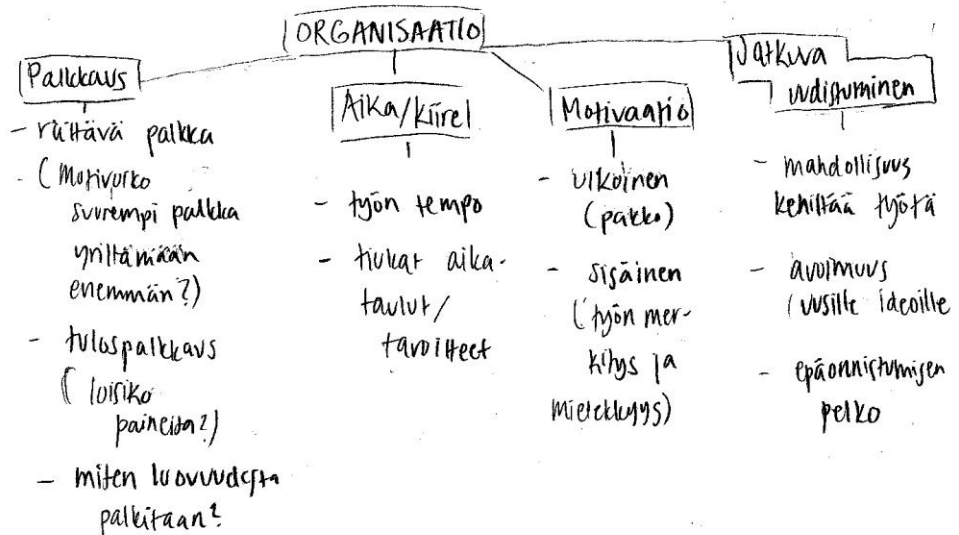 ORGANISAATIO
Palkkaus
- riittävä palkka
- (Motivoiko
suurempi palkka
yrittämään
enemmän?)
- tulospalkkaus
(loisiko
paineita?)
- miten luovuudesta
palkitaan?
Aika/kiire
- työn tempo
- tiukat aika-
taulut/
tavoitteet
Motivaatio
- ulkoinen
(pakko)
- sisäinen
(työn mer-
kitys ja
mielekkyys)
Jatkuva
uudistuminen
- mahdollisuus
kehittää työtä
- avoimuus
(uusille ideoille
- epäonnistumisen
pelko